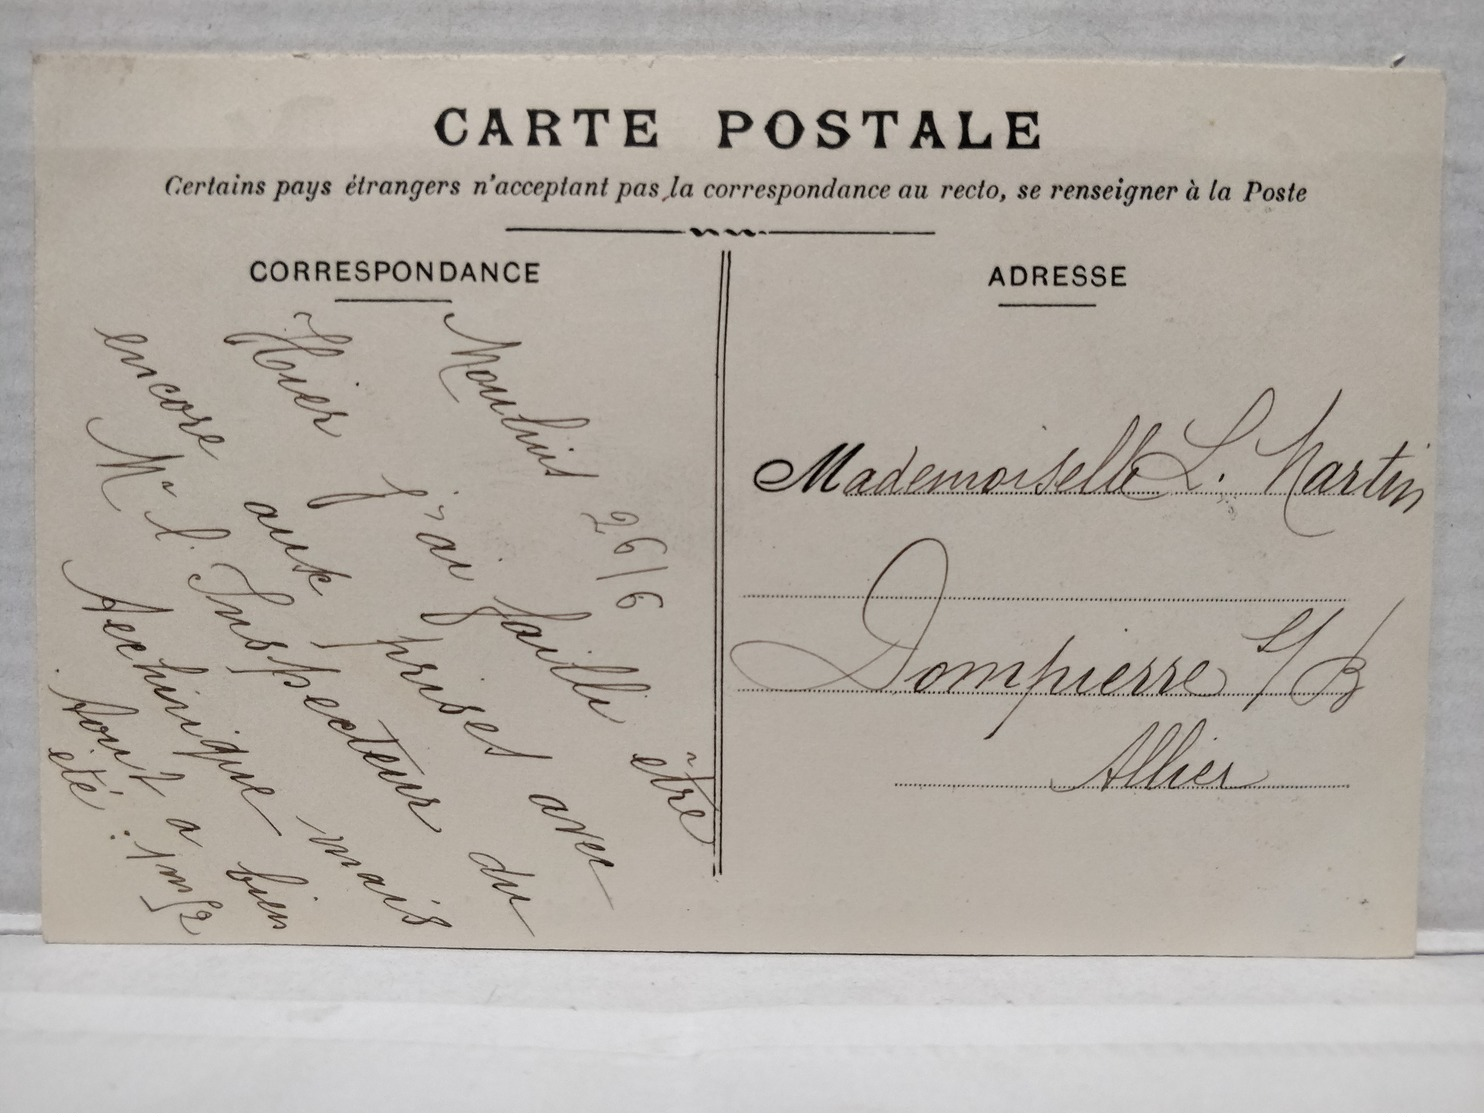 CARTE POSTALE
Certains pays étrangers n'acceptant pas la correspondance au recto, se renseigner à la Poste
CORRESPONDANCE
Moulins 26/6
Hier j'ai failli être
encore aux prises avec
Mr l'Inspecteur du
Technique mais
tout a bien
été.
ADRESSE
Mademoiselle L. Martin
Dompierre S/B
Allier